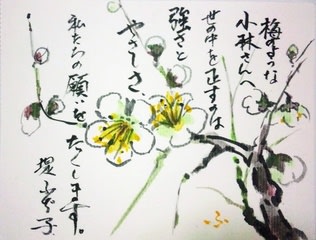 梅のような
小林さんへ
世の中を正すのは
強さと
やさしさ、
私たちの願いをたくします。
堀
子
ふ